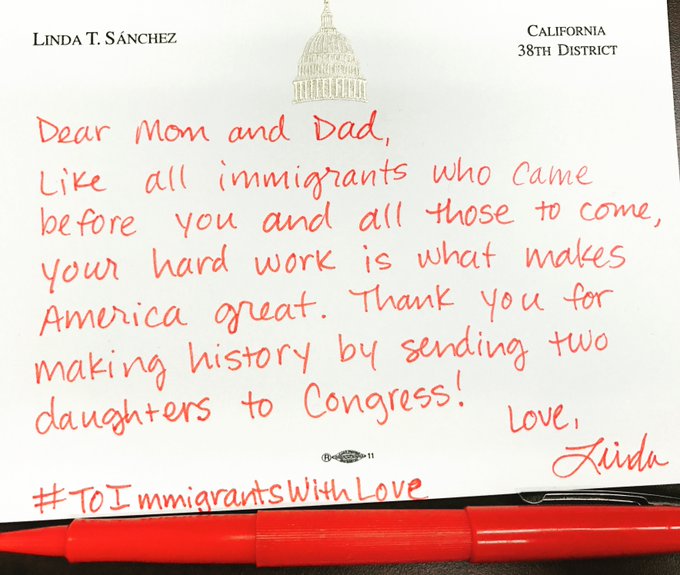 LINDA T. SÁNCHEZ
CALIFORNIA
38TH DISTRICT
Dear Mom and Dad,
Like all immigrants who came
before you and all those to come,
your hard work is what makes
America great. Thank you for
making history by sending two
daughters to Congress!
Love,
Linda
11
#ToImmigrantsWithLove